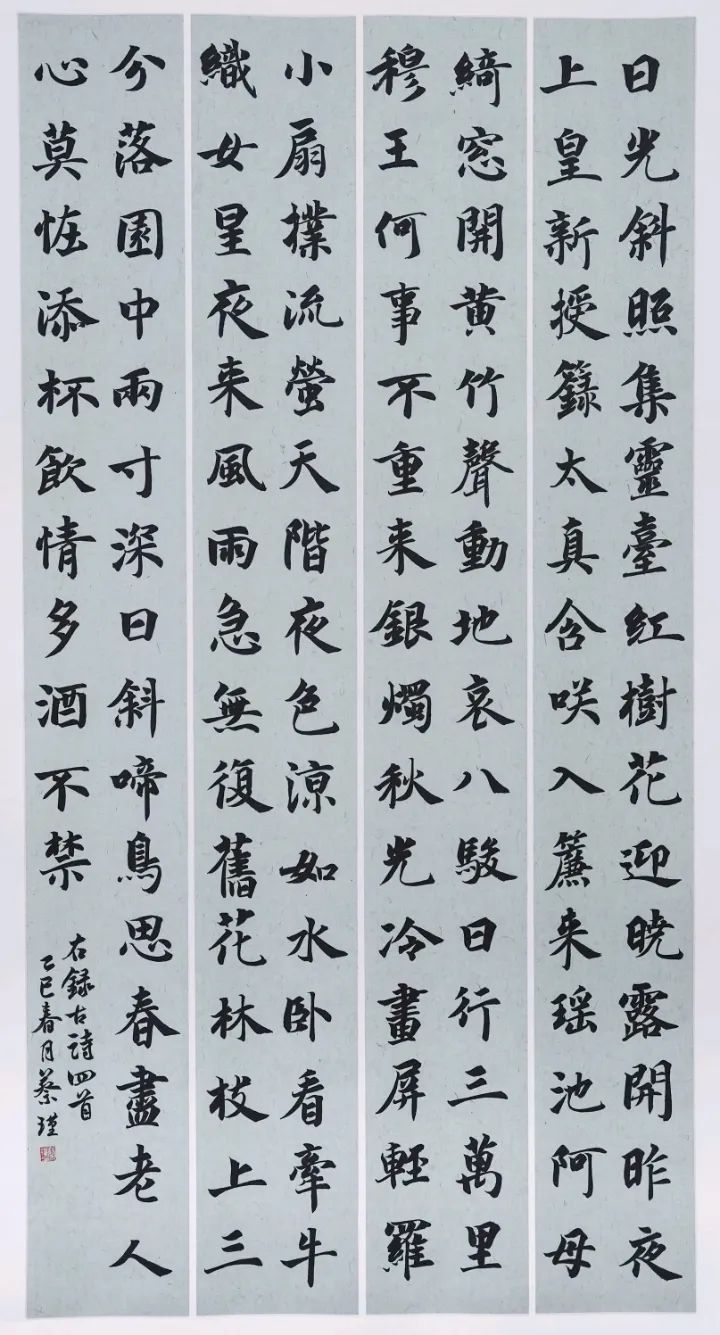 日光斜照集靈臺紅樹花迎晓露開昨夜
上皇新授籙太真含咲入簾来瑶池阿母
綺窓開黄竹聲動地哀八駿日行三萬里
穆王何事不重来銀燭秋光冷畫屏輕羅
小扇撲流螢天階夜色涼如水卧看牽牛
織女星夜来風雨急無復舊花林枝上三
分落園中兩寸深日斜啼鳥思春盡老人
心莫恠添杯飲情多酒不禁
右録古詩四首
乙巳春月蔡瑾